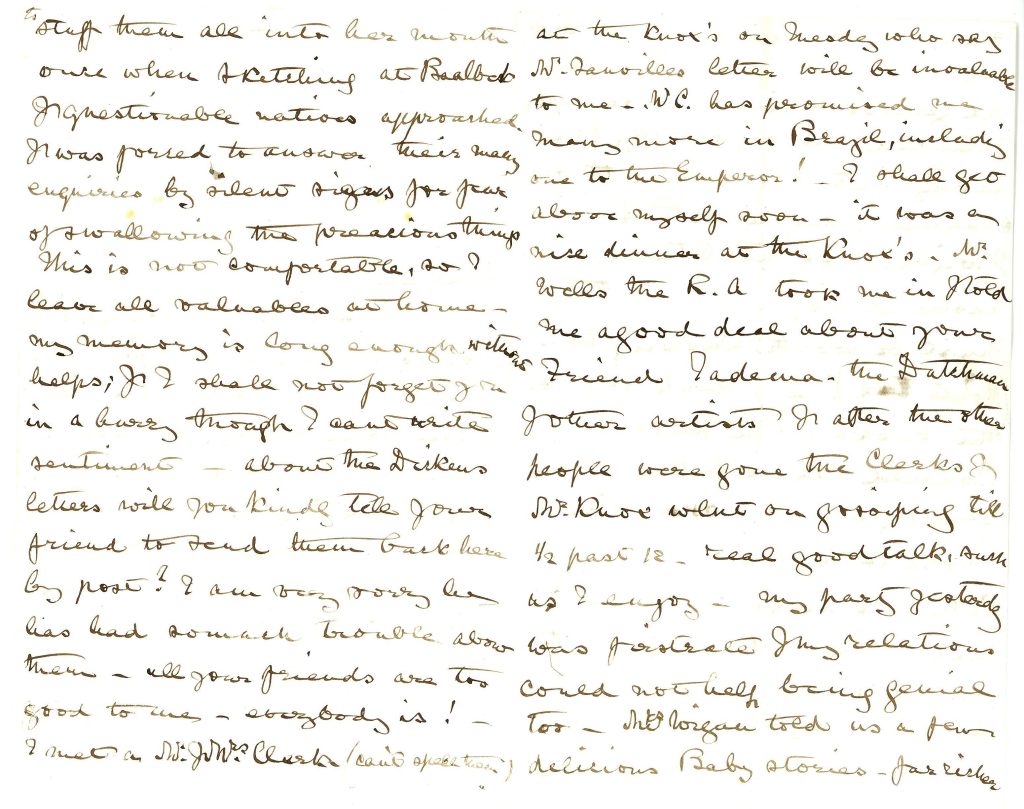 to stuff them all into her mouth
once when sketching at Baalbek
& questionable natives approached.
& was forced to answer their many
enquiries by silent signs for fear
of swallowing the preacious things
This is not comfortable, so I
leave all valuables at home –
my memory is long enough without
helps; & I shall not forget you
in a hurry though I cant write
sentiment – about the Dickens
letters will you kindly tell your
friend to send them back here
by post? I am very sorry he
has had so much trouble about
them – all your friends are too
good to me – everybody is! –
I met a Mr. & Mrs Clerk (cant spell them)
at the Knox's on Tuesday who say
Mr. letter will be invaluable
to me – W C. has promised me
many more in Brazil, including
one to the Emperor! – I shall get
above myself soon – it was a
nice dinner at the Knox's. Mr.
Wells the R. A took me in & told
me a good deal about your
Friend Tadema – the Dutchman
& other artists & after the other
people were gone the Clerks &
Mr. Knox went on gossiping till
1/2 past 12 – real good talk, such
as I enjoy – my party yesterday
was firstrate & my relations
could not help being genial
too – Mrs Wigan told us a few
delicious Baby stories – far richer